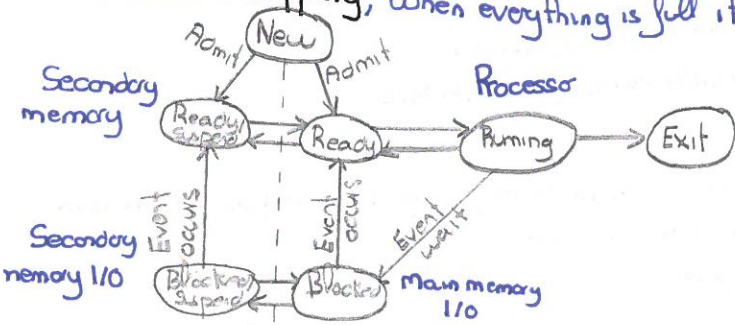 ping, when everything is full it
New
Admit
Admit
Secondary
memory
Processor
Ready/
suspend
Ready
Running
Exit
Event
occurs
Event
occurs
Event
wait
Secondary
memory I/O
Blocked/
suspend
Blocked
Main memory
I/O